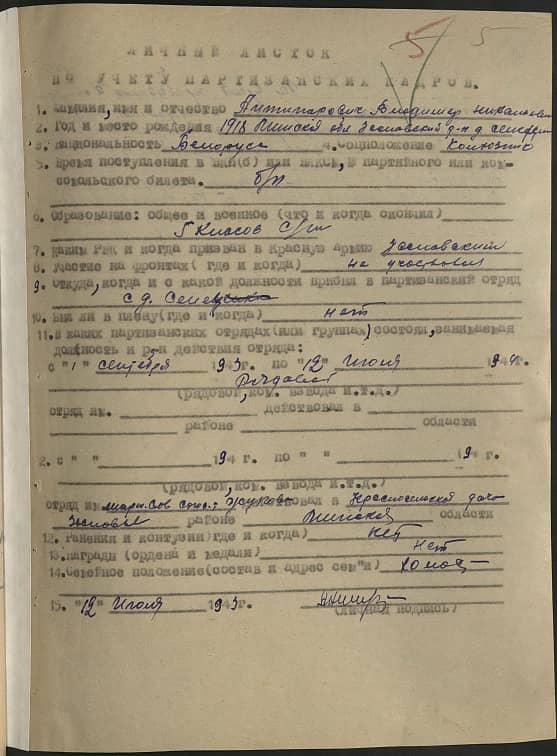 5 5
ЛИЧНЫЙ ЛИСТОК
ПО УЧЕТУ ПАРТИЗАНСКИХ КАДРОВ.
1. Фамилия, имя и отчество Антипорович Владимир Николаевич
2. Год и место рождения 1918 Пинская обл
3. Национальность Белорус 4. Соцположение
5. Время поступления в ВКП(б) или ВЛКСМ, № партийного или ком-
сомольского билета. б/п
6. Образование: общее и военное (что и когда окончил)
5 класов
7. Каким РВК и когда призван в Красную армию
8. Участие на фронтах (где и когда) не участвовал
9. Откуда, когда и с какой должности прибыл в партизанский отряд
с д.
10. Был ли в плену (где и когда) нет
11. В каких партизанских отрядах (или группах) состоял, занимаемая
должность и р-н действия отряда:
с "1" сентября 1943 г. по "12" Июля 1944 г.
Рядовой
(рядовой, ком. взвода и.т.д.)
отряд им. действовал в
районе области
2. с " " 194 г. по " " 194 г.
(рядовой, ком. взвода и.т.д.)
отряд им. Марш. Сов. Союз. Жукова действовал в дача
районе Пинской области
12. Ранения и контузии (где и когда) нет
13. Награды (ордена и медали) нет
14. Семейное положение (состав и адрес сем"и)
15. "12" Июля 1943
(личная подпись)